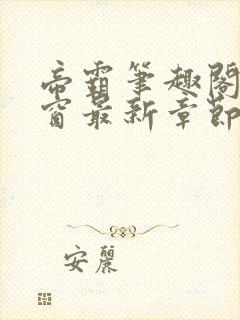 帝霸筆趣閣
窗最新章節
安麗